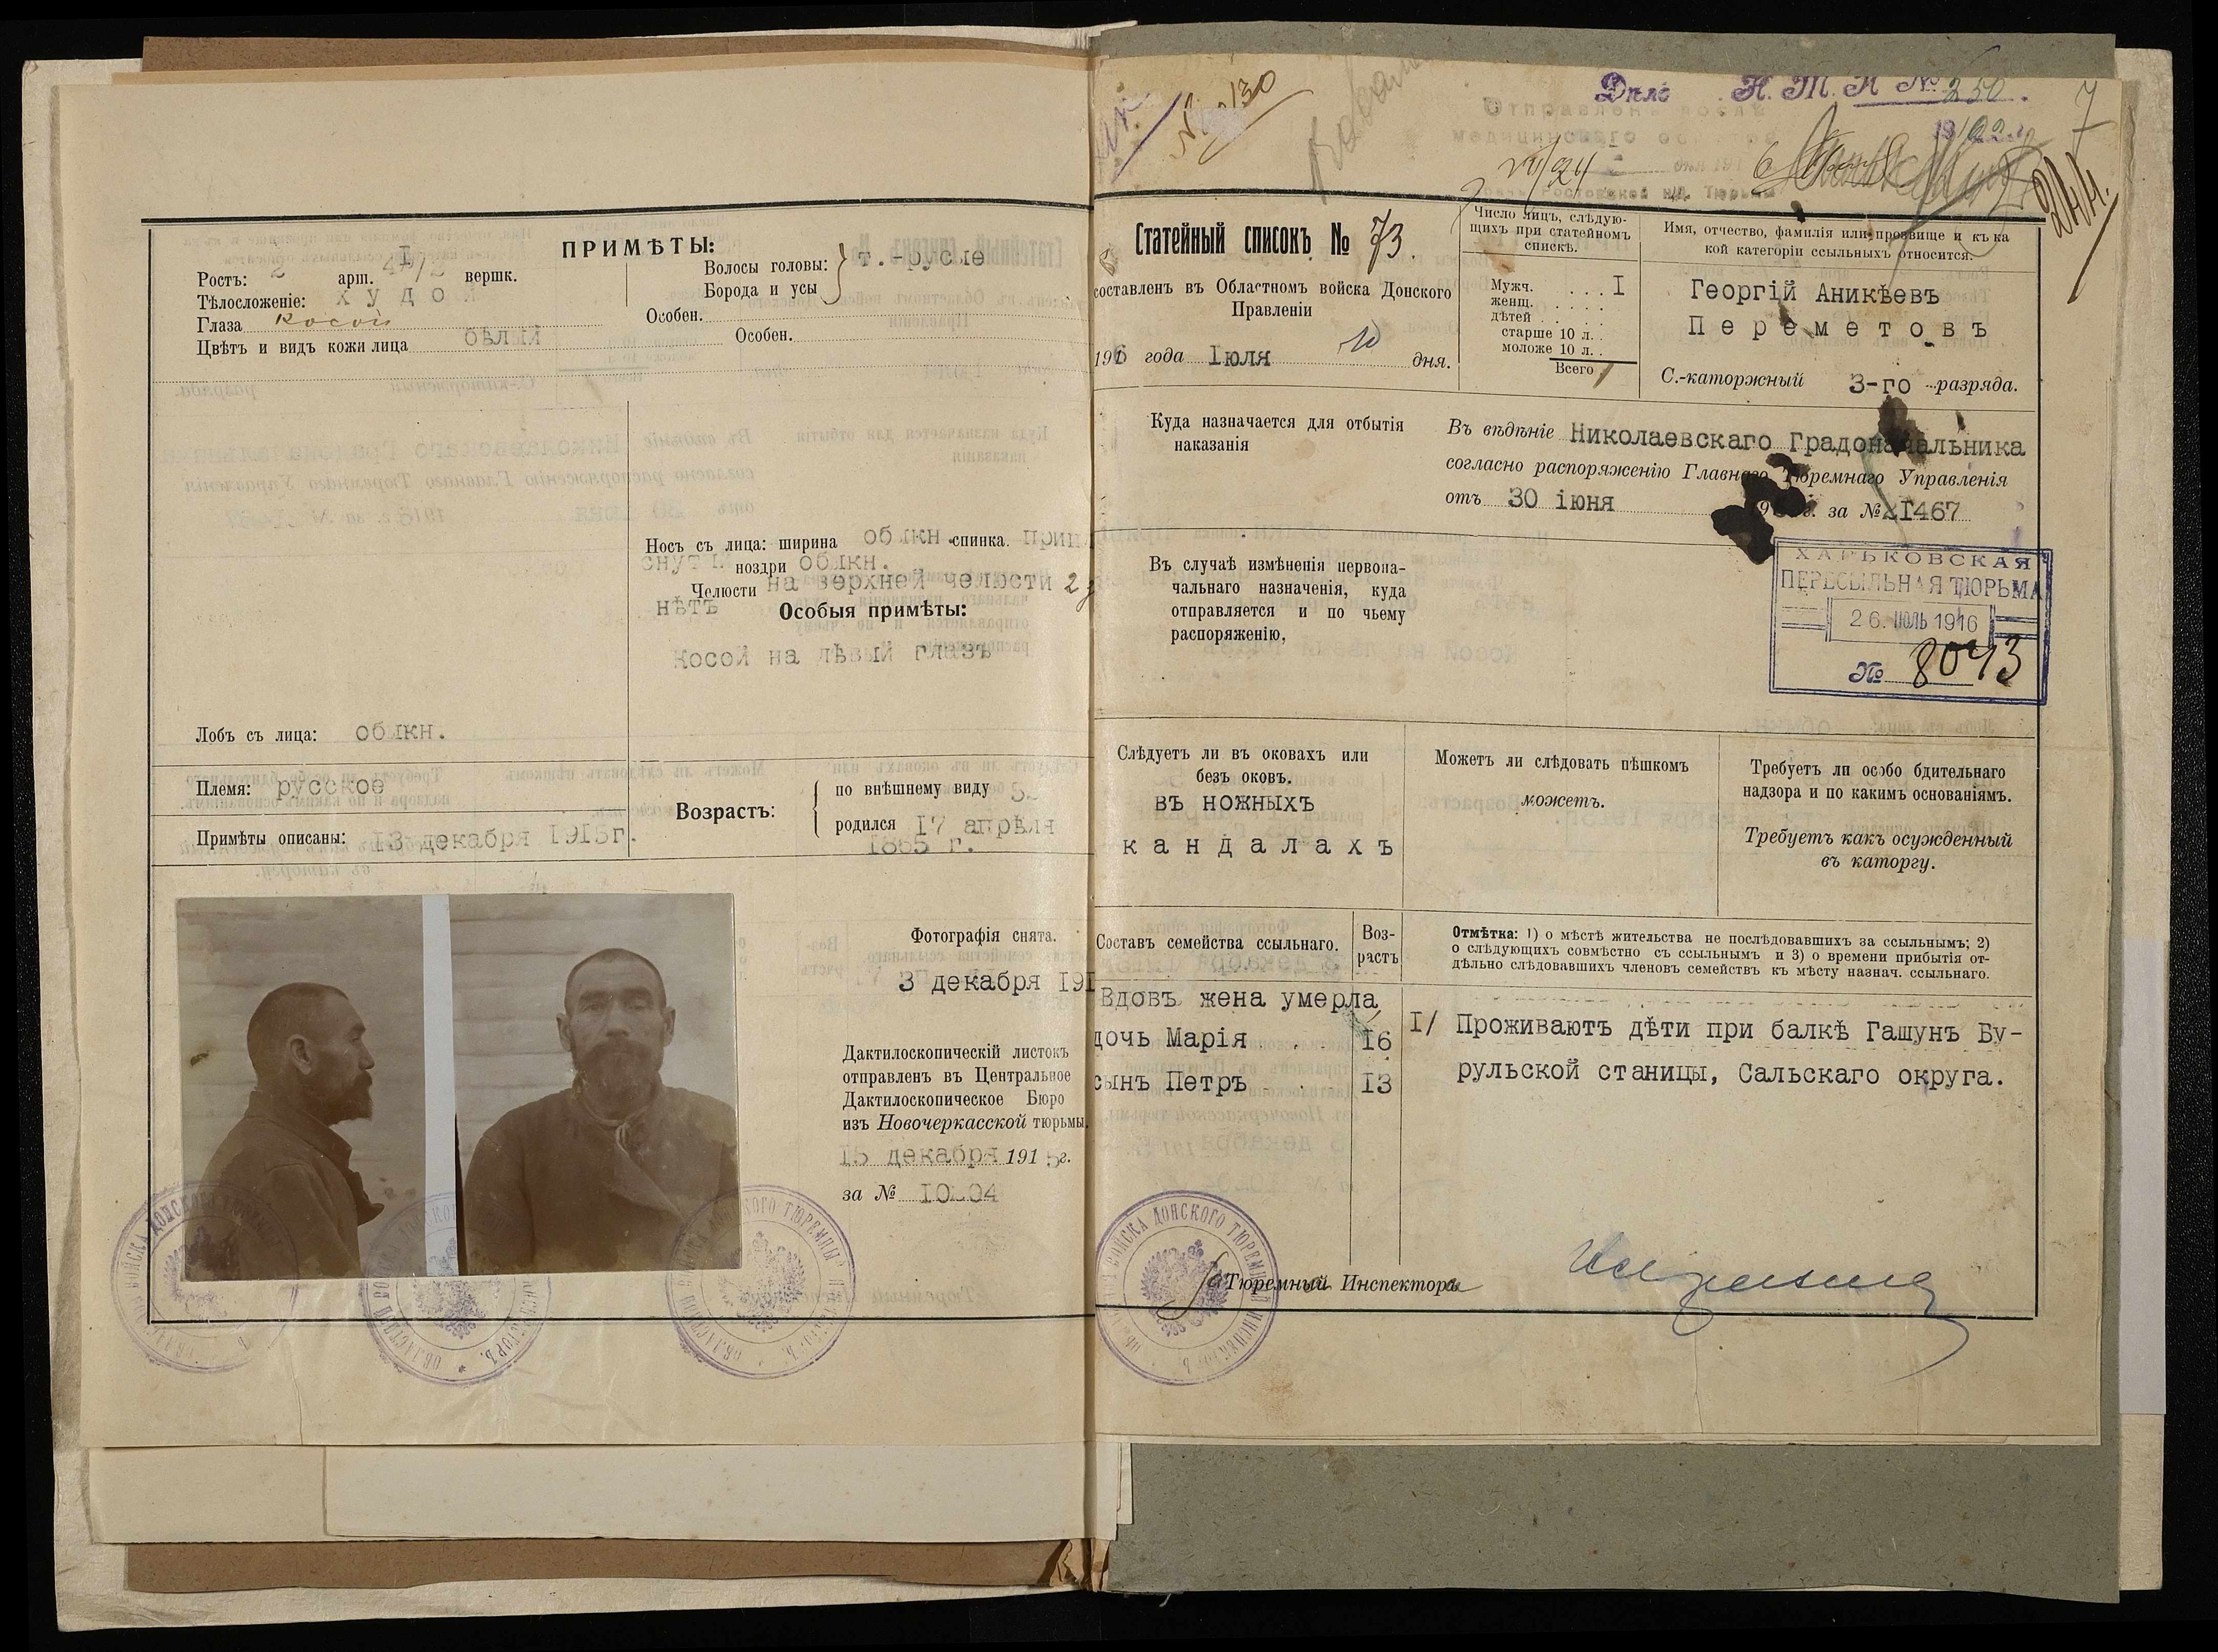 ПРИМѢТЫ:
Ростъ: 2 арш. вершк.
Тѣлосложеніе: худой
Глаза косой
Цвѣтъ и видъ кожи лица бѣлый
Волосы головы: } т.-русые
Борода и усы
Особен.
Особен.
Носъ съ лица: ширина обыкн. спинка.
ноздри обыкн.
Челюсти на верхней челюсти 2
нѣтъ
Особыя примѣты:
косой на лѣвый глазъ
Лобъ съ лица: обыкн.
Племя: русское
Примѣты описаны: 13 декабря 1915г.
Возрастъ:
по внѣшнему виду
родился 17 апрѣля
1865 г.
Фотографія снята.
3 декабря 191
Дактилоскопическій листокъ
отправленъ въ Центральное
Дактилоскопическое Бюро
изъ Новочеркасской тюрьмы
15 декабря 1915г.
за №
Дѣло Н. Т. К № 250.
Отправленъ послѣ
медицинскаго осмотра
Ростовской н/Д. Тюрьмы
7
Статейный списокъ № 73.
составленъ въ Областномъ войска Донского
Правленіи
1916 года Iюля 10 дня.
Число лицъ, слѣдую-
щихъ при статейномъ
спискѣ.
Мужч. . . . I
женщ. . . . .
дѣтей . . . .
старше 10 л. .
моложе 10 л. .
Всего 1
Имя, отчество, фамилія или прозвище и къ ка
кой категоріи ссыльныхъ относится.
Георгій Аникѣевъ
Переметовъ
С.-каторжный 3-го разряда.
Куда назначается для отбытія
наказанія
Въ вѣдѣніе Николаевскаго Градоначальника
согласно распоряженію Главнаго Тюремнаго Управленія
отъ 30 іюня г. за № 21467
Въ случаѣ измѣненія первона-
чальнаго назначенія, куда
отправляется и по чьему
распоряженію,
ХАРЬКОВСКАЯ
ПЕРЕСЫЛЬНАЯ ТЮРЬМА
26. ИЮЛЬ 1916
№ 8043
Слѣдуетъ ли въ оковахъ или
безъ оковъ.
въ ножныхъ
кандалахъ
Можетъ ли слѣдовать пѣшкомъ
можетъ.
Требуетъ ли особо бдительнаго
надзора и по какимъ основаніямъ.
Требуетъ какъ осужденный
въ каторгу.
Составъ семейства ссыльнаго.
Воз-
растъ
Отмѣтка: 1) о мѣстѣ жительства не послѣдовавшихъ за ссыльнымъ; 2)
о слѣдующихъ совмѣстно съ ссыльнымъ и 3) о времени прибытія от-
дѣльно слѣдовавшихъ членовъ семействъ къ мѣсту назнач. ссыльнаго.
Вдовъ жена умерла
дочь Марія . . 16
сынъ Петръ . . 13
I/ Проживаютъ дѣти при балкѣ Гашунъ Бу-
рульской станицы, Сальскаго округа.
За Тюремнаго Инспектора
ОБЛАСТИ ВОЙСКА ДОНСКОГО ТЮРЕМНЫЙ ИНСПЕКТОРЪ